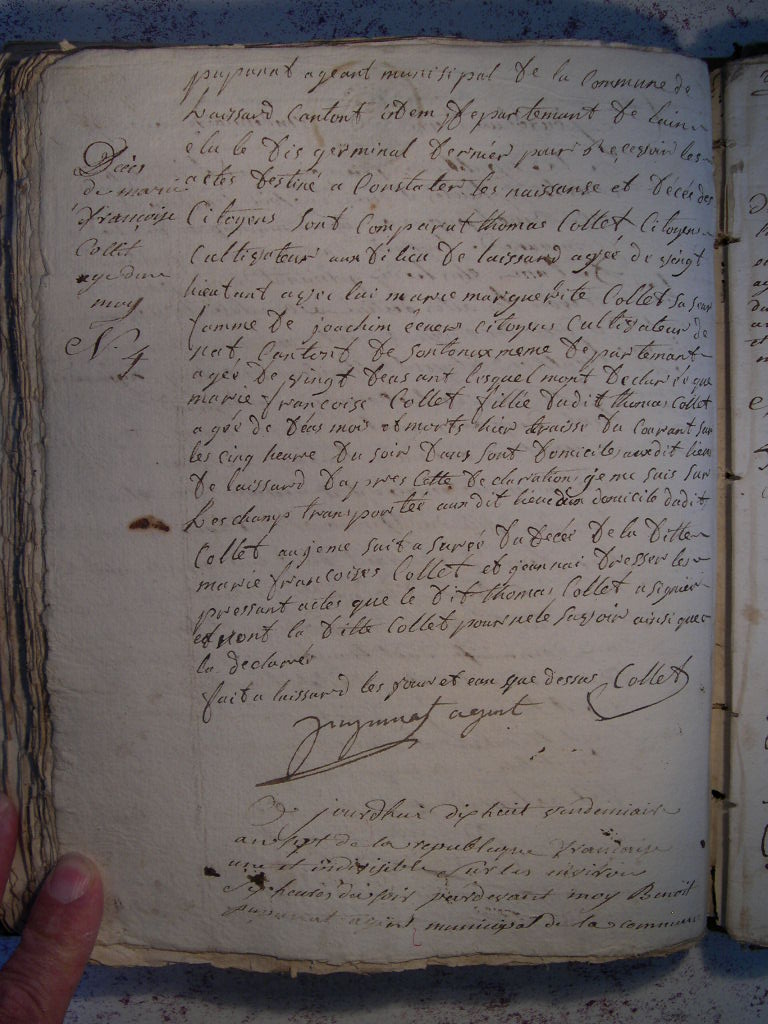 Décès
de marie
françoise
Collet
agé dun
moy
N. 4
pupunat ageant munisipal De la Commune de
Laissard Canton idem Departement De lain
elu le Dis germinal Dernier pour Recessoir les
actes Destiné a Constater les naissanse et Décée des
Citoyens sont Comparut thomas Collet Citoyens
Cultivateur aux Di lieu De laissard agée de vingt
hieutant avec lui marie marguerite Collet sa seur
famme De joachim citoyens Cultivateur de
nat Canton De Sontonax meme Departemant
agée De vingt Deas ant lesquel mont Declarée que
marie françoise Collet fillie Dudit thomas Collet
agée de Deas mois et morts hier traisse Du Courant sur
les cinq heure Du soir Dans sont Domicile auxdit lieu
De laissard Dapres Cette Declaration je me suis sur
Les champ transportée aux dit lieu dun domicile dudit
Collet au jeme suit asurée Du Décée De la Ditte
marie françoises Collet et jean nai Dresser les
pressant actes que le Dit thomas Collet a signier
et nont la Ditte Collet pour ne le savoir ainsi que
la declarée
fait a laissard les jour et ean que dessus Collet
pupunat agent
jourdhui dix huit vendemiaire
an sept de la republique francaise
une et indivisible sur les environ
six heures du soir pardevant moy Benoit
pupunat agent municipal de la commune